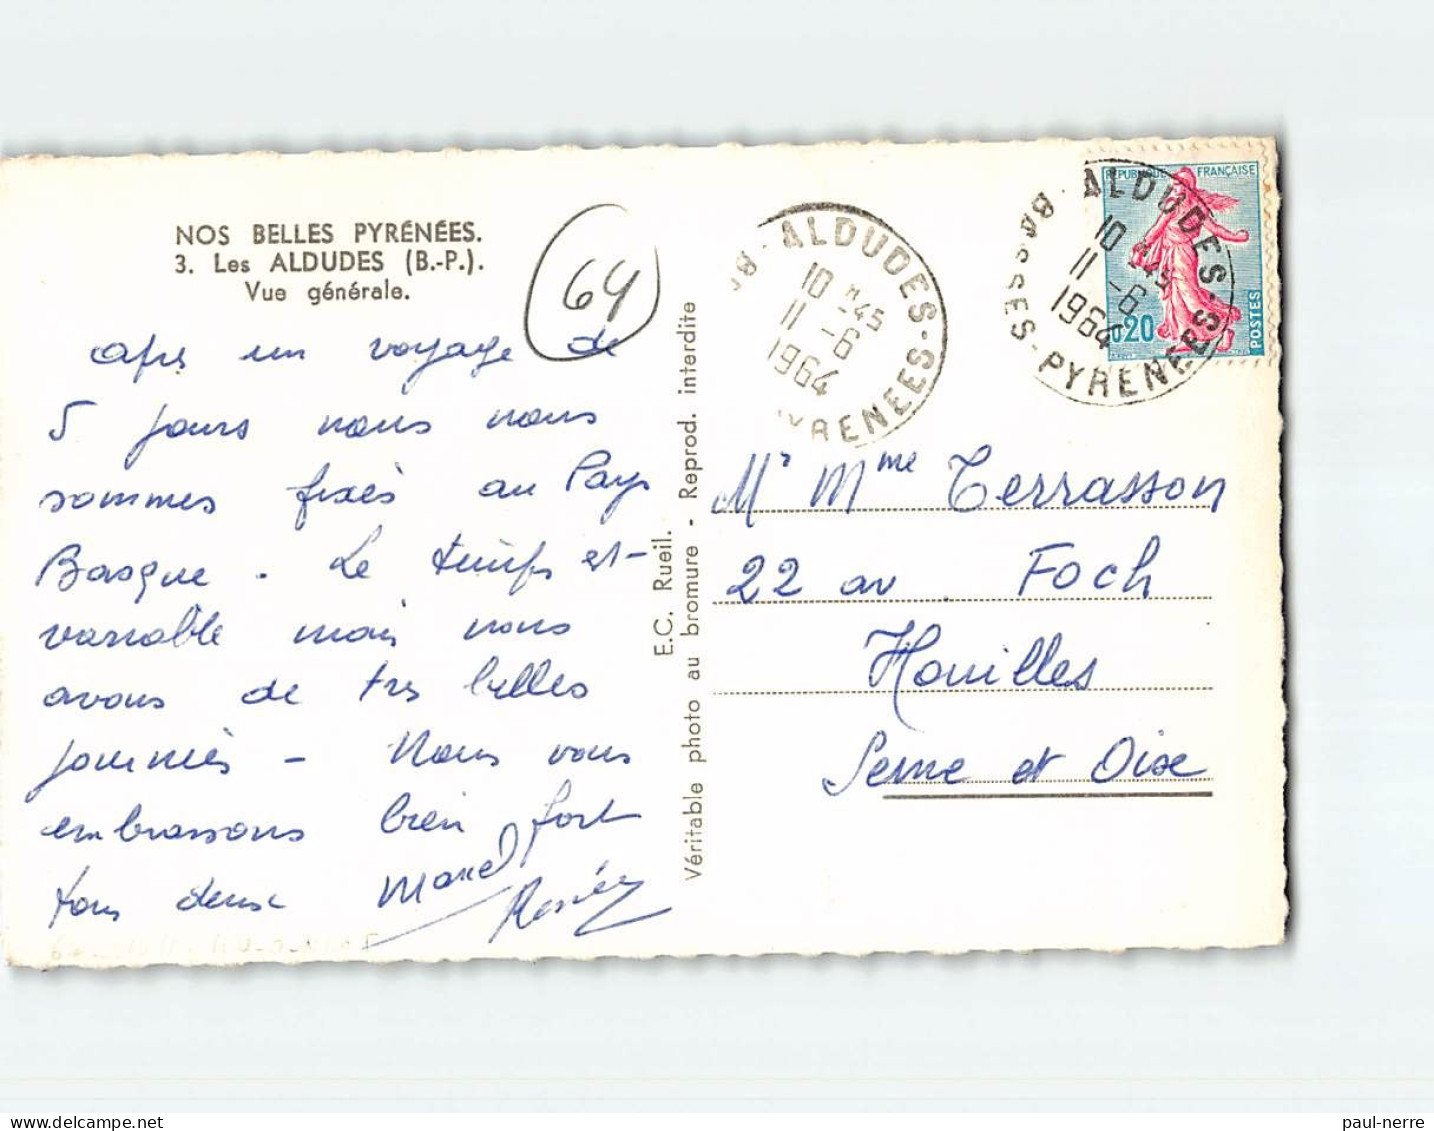 NOS BELLES PYRÉNÉES.
3. Les ALDUDES (B.-P.).
Vue générale.
64
afrs un voyage de
5 jours nous nous
sommes fixés au Pays
Basque. Le temps est
variable mais nous
avons de trs belles
journées - Nous vous
embrassons bien fort
tous deux Marcel
E.C. Rueil.
Véritable photo au bromure - Reprod. interdite
ALDUDES
10 H 45
11 -6
1964
PYRENEES
REPUBLIQUE FRANÇAISE
0,20
POSTES
ALDUDES
10 H 45
11 -6
1964
BASSES-PYRENEES
Mr Mme Terrasson
22 av. Foch
Houilles
Seine et Oise
paul-nerre